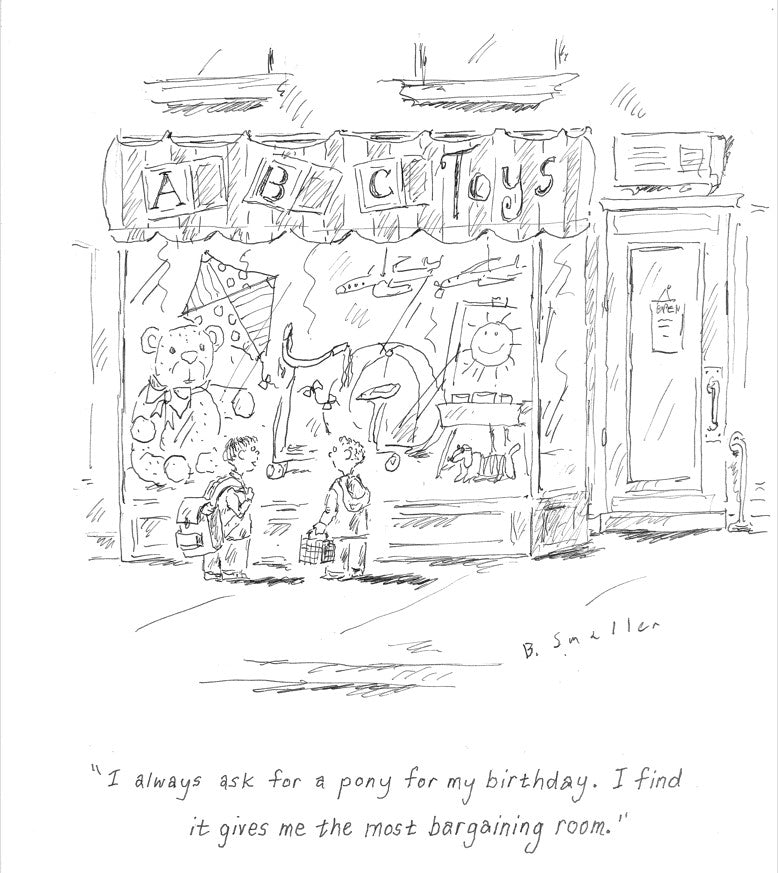 A B C Toys
OPEN
B. Smaller
"I always ask for a pony for my birthday. I find
it gives me the most bargaining room."